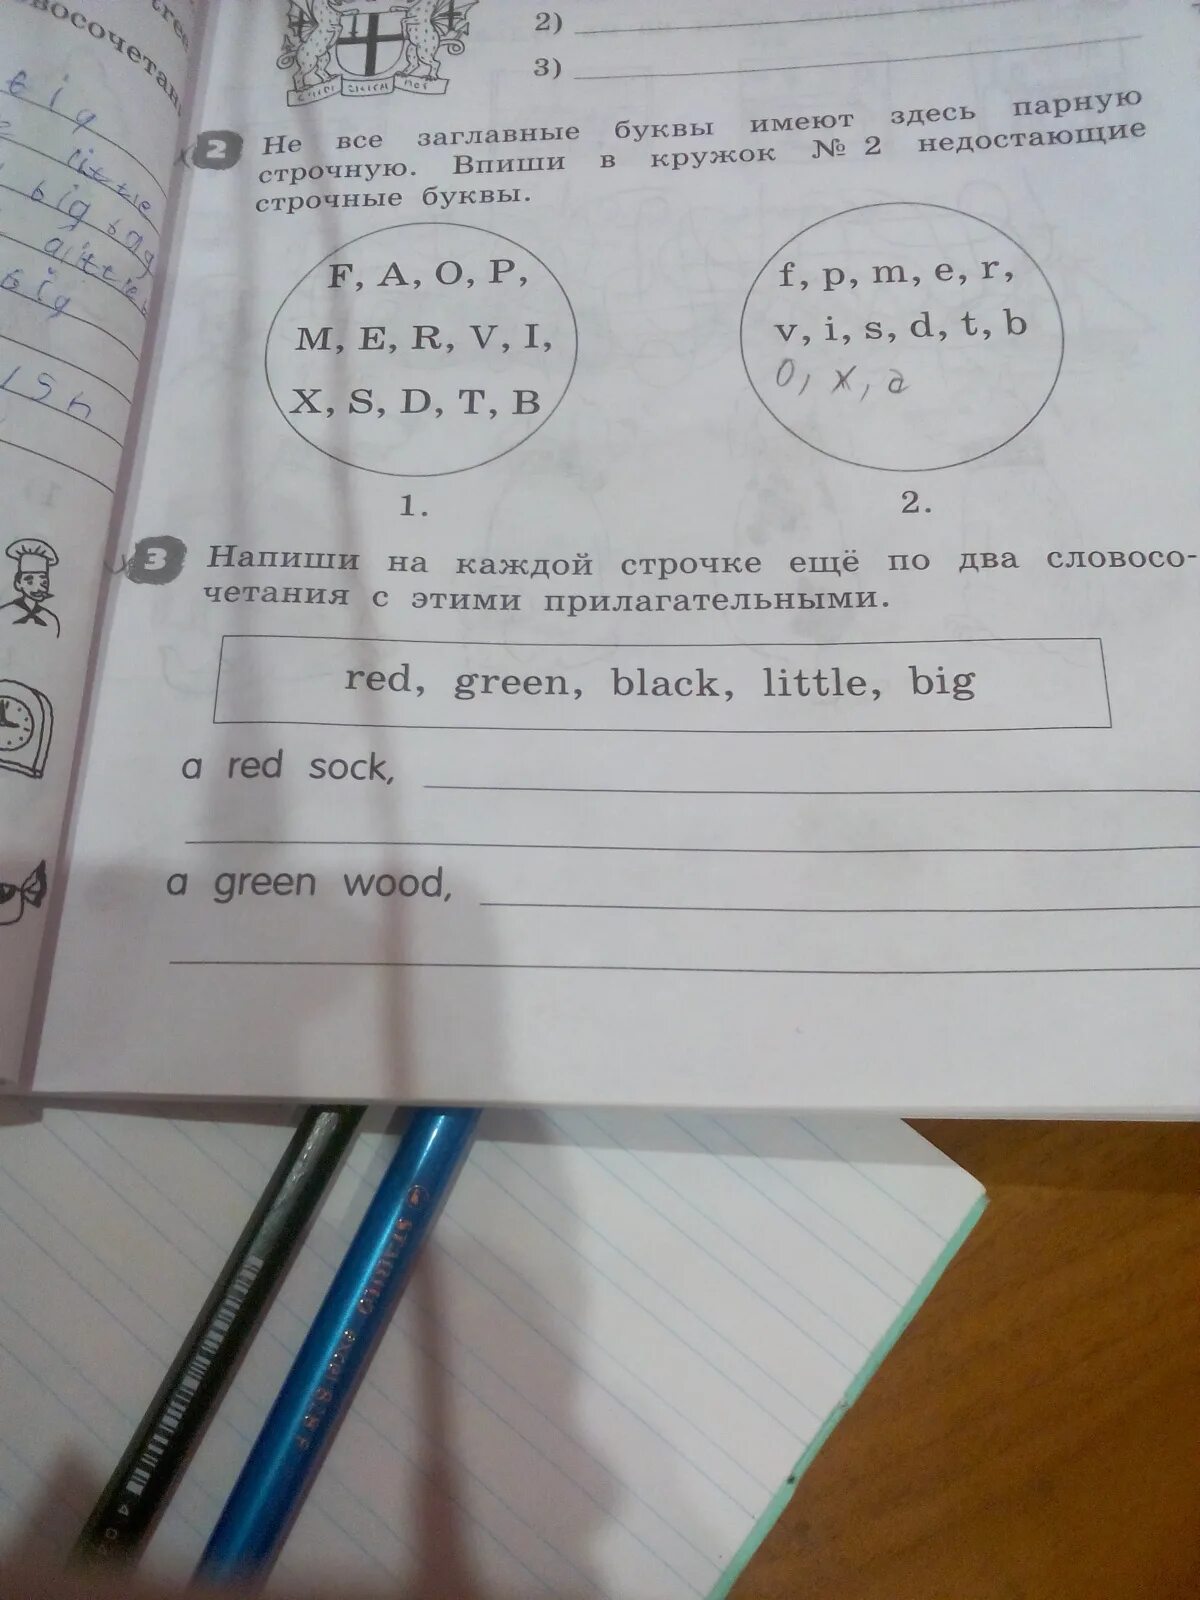 2)
3)
2 Не все заглавные буквы имеют здесь парную
строчную. Впиши в кружок № 2 недостающие
строчные буквы.
F, A, O, P,
M, E, R, V, I,
X, S, D, T, B
1.
f, p, m, e, r,
v, i, s, d, t, b
o, x, a
2.
3 Напиши на каждой строчке ещё по два словосо-
четания с этими прилагательными.
red, green, black, little, big
a red sock,
a green wood,
tree
big
little
big bag
big